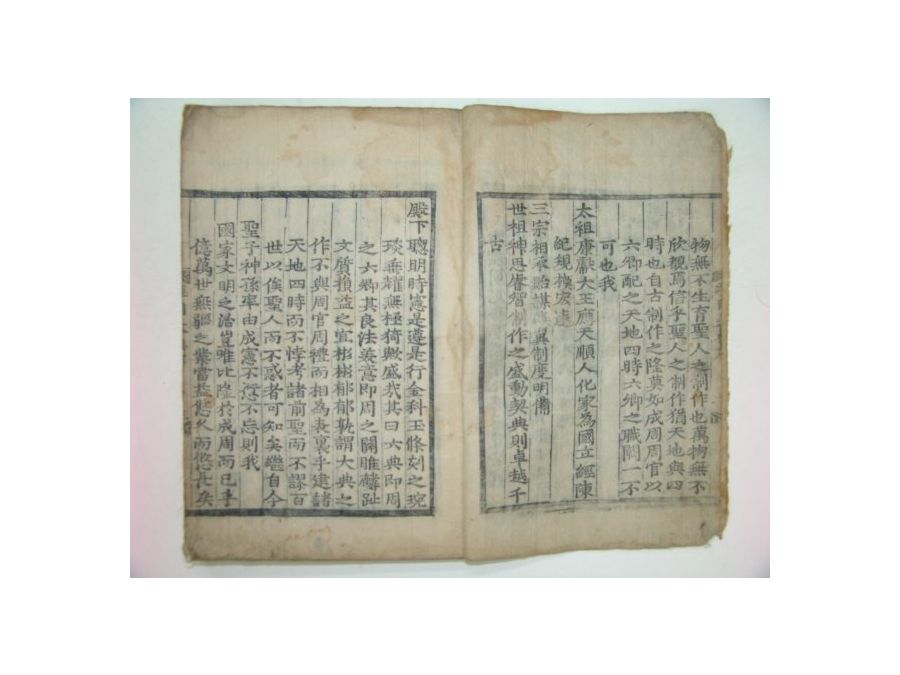 物無不生育聖人之制作也萬物無不
欣覩焉信乎聖人之制作猶天地與四
時也自古制作之隆莫如成周周官以
六卿配之天地四時六卿之職闕一不
可也我
太祖康獻大王應天順人化家爲國立經陳
紀規模宏遠
三宗相承貽謀 翼制度明備
世祖神思睿智制作之盛動契典則卓越千
古
殿下聰明時憲是遵是行金科玉條刻之琬
琰垂耀無極猗歟盛哉其曰六典即周
之六卿其良法美意即周之關雎麟趾
文質損益之宜彬彬郁郁孰謂大典之
作不與周官周禮而相為表裏乎建諸
天地四時而不悖考諸前聖而不謬百
世以俟聖人而不惑者可知矣繼自今
聖子神孫率由成憲不愆不忘則我
國家文明之治豈唯比隆於成周而已乎
億萬世無疆之業當益悠久而悠長矣